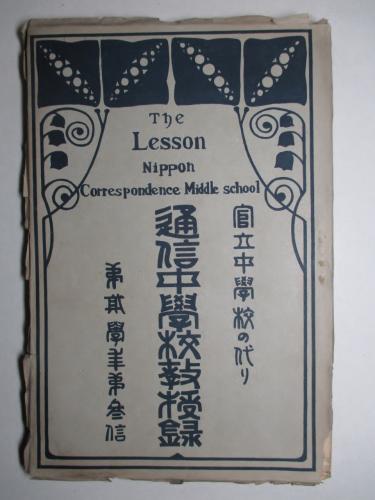 The
Lesson
Nippon
Correspondence Middle school
官立中學校の代り
通信中學校教授録
學年第參信